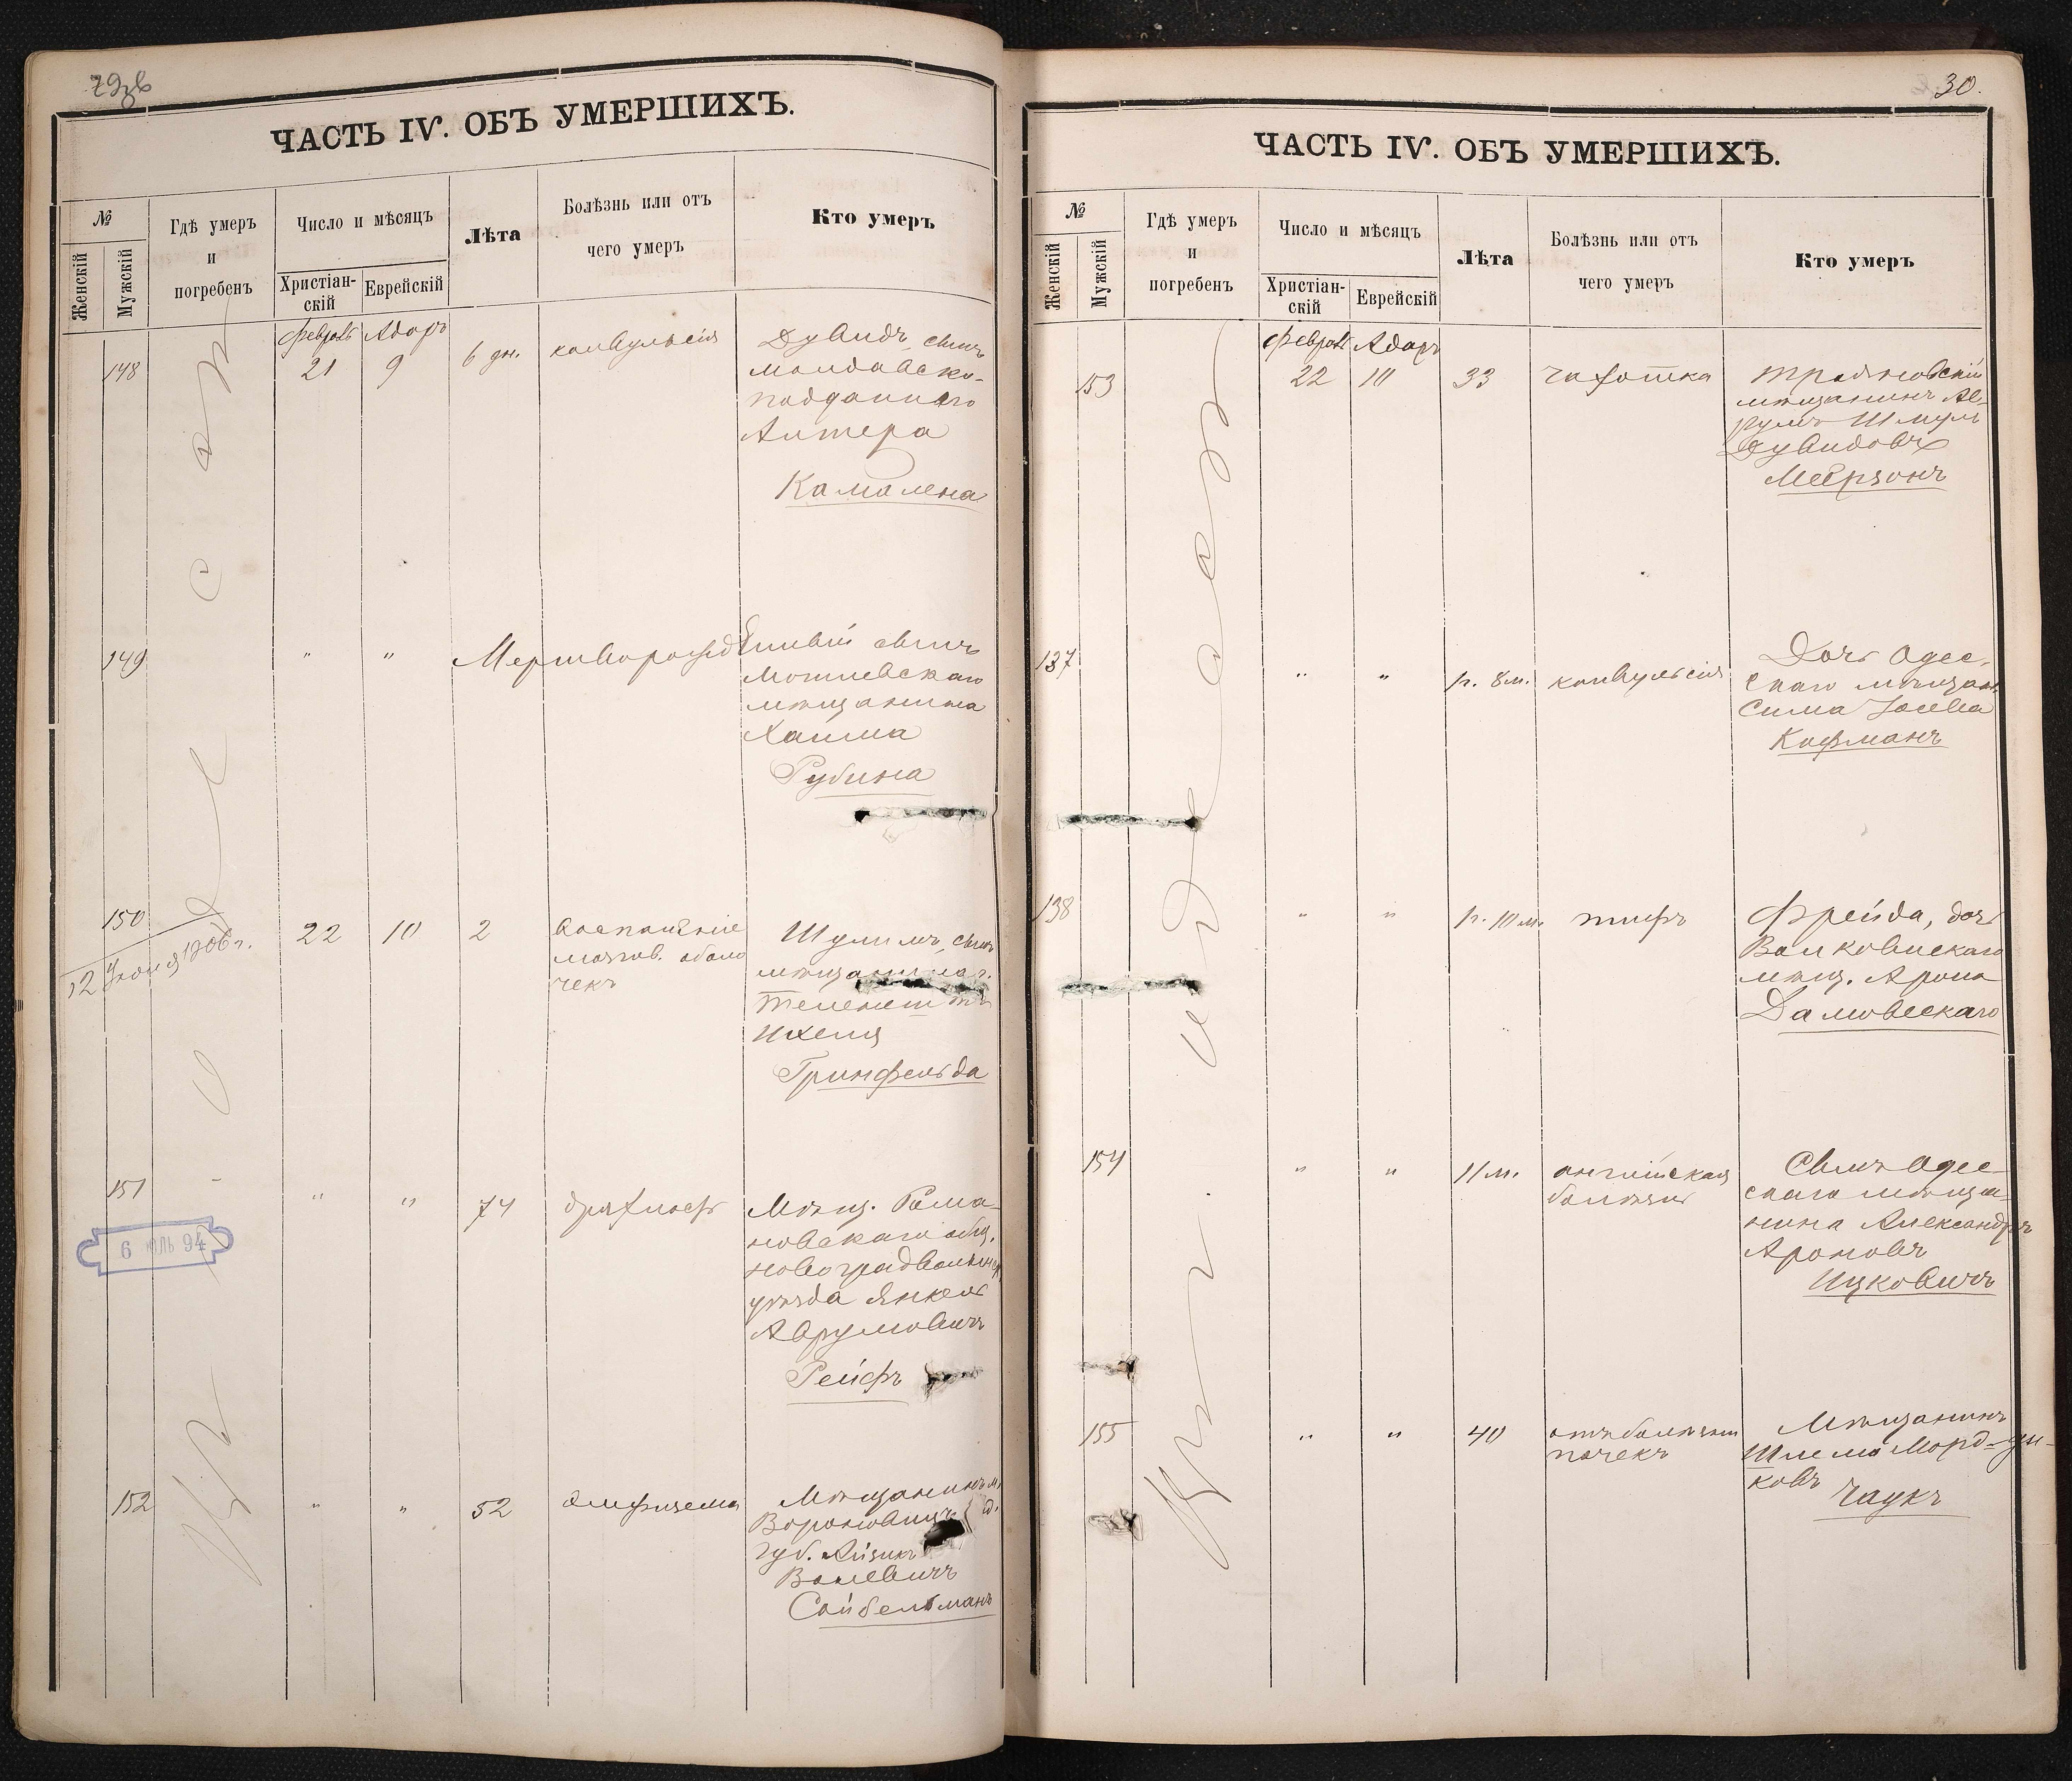 29об
ЧАСТЬ IV. ОБЪ УМЕРШИХЪ.
№
Женскій
Мужскій
Гдѣ умеръ
и
погребенъ
Число и мѣсяцъ
Христіан-
скій
Еврейскій
Лѣта
Болѣзнь или отъ
чего умеръ
Кто умеръ
Февраль Адаръ
148
21
9
6 дн.
конвульсія
Дувидъ, сынъ
молдавско-
подданнаго
Алтера
Камалена
149
"
"
Мертворожденный сынъ
Могилевскаго
мѣщанина
Хаима
Рубина
150
12 Іюня 1906 г.
22
10
2
воспаленіе
мозгов. оболо
чекъ
Шулимъ, сынъ
мѣщанина
Теленешты
Ихеля
Гринфельда
151
6 94
"
"
74
дряхлость
Мѣщ. Рома-
новскаго общ.
Новоградволынск.
уѣзда Янкель
Аврумовичъ
Рейфъ
152
"
"
52
Эмфизема
Мѣщанинъ м.
Вороновицъ
губ. Айзикъ
Волевичъ
Сойбельманъ
30.
ЧАСТЬ IV. ОБЪ УМЕРШИХЪ.
№
Женскій
Мужскій
Гдѣ умеръ
и
погребенъ
Число и мѣсяцъ
Христіан-
скій
Еврейскій
Лѣта
Болѣзнь или отъ
чего умеръ
Кто умеръ
Февраль Адаръ
153
22
10
33
чахотка
мѣщанинъ Ав-
румъ Шмуль
Дувидовъ
Меерзонъ
137
"
"
1 г. 8 м.
конвульсія
Дочь Одес-
скаго мѣщан.
Сима Іосева
Кофманъ
138
"
"
1 г. 10 м.
тифъ
Фрейда, дочь
Волковискаго
мѣщ. Арона
154
"
"
11 м.
англійская
болѣзнь
Сынъ Одес-
скаго мѣща-
нина Александръ
Ароновъ
Ицковичъ
155
"
"
40
отъ болѣзни
почекъ
Мѣщанинъ
Шлема Морд-
ковъ
Чаукъ